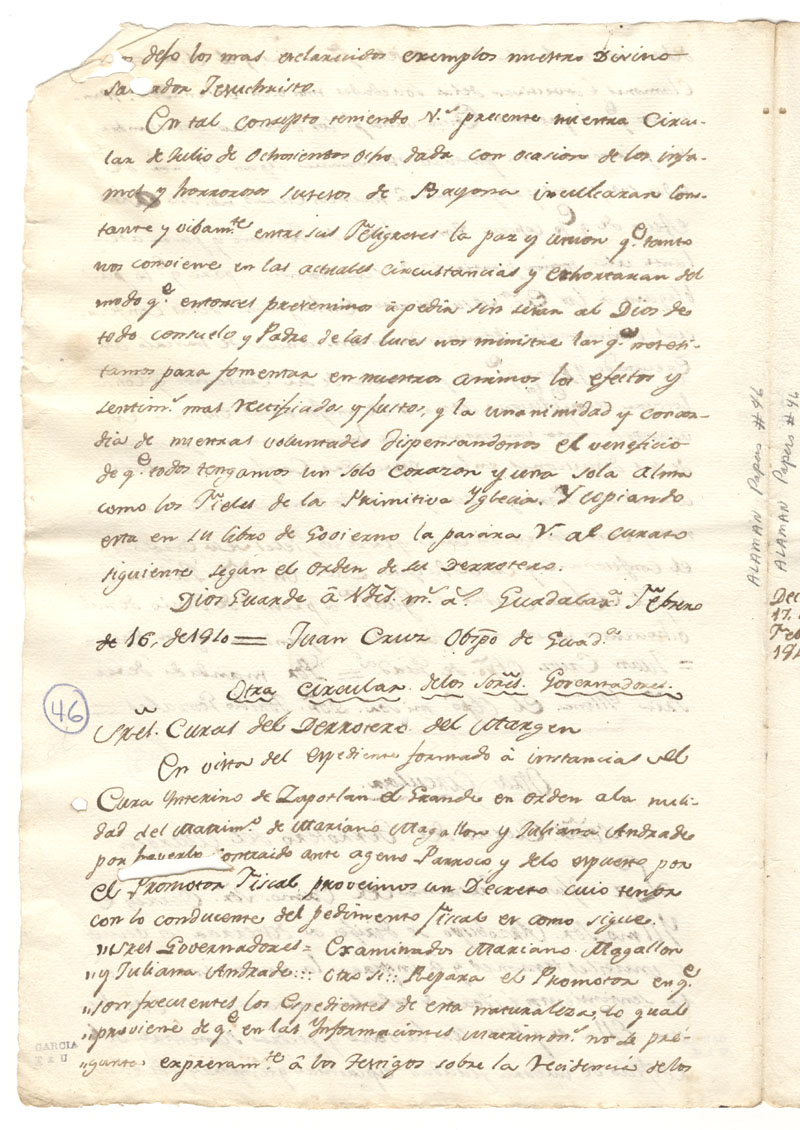 dejo los mas esclarecidos exemplos nuestro Divino
Salvador Jesuchristo.
En tal consepto teniendo V.s precente nuestra Circu-
lar de Julio de Ochosientos ocho dada con ocasion de los infa-
mes y horrorosos susesos de Bayona inculcaran cons-
tante y vibam.te entre sus Feligreses la paz y union q.e tanto
nos conviene en las actuales circustancias y exhortaran del
modo q.e entonces prevenimos á pedir sin sesar al Dios de
todo consuelo y Padre de las luces nos ministre las q.e nesesi-
tamos para fomentar en nuestros animos los efectos y
sentim.s mas recificada y justos, y la unanimidad y concor-
dia de nuestras voluntades dispensandonos el veneficio
de q.e todos tengamos un solo corazon y una sola alma
como los Fieles de la Primitiva Yglecia. Y copiando
esta en su libro de Govierno la pasara V. al curato
siguiente segun el orden de su Derrotero.
Dios Guarde á Vds. m.s a.s Guadalax.a Febrero
de 16, de 1810 = Juan Cruz Obispo de Guad.a
Otra circular de los Sores. Governadores.
46
Sres. Curas del Derrotero del Margen
En vista del espediente formado á instancias del
Cura Ynterino de Zapotlan el Grande en orden a la nuli-
dad del Matrim.o de Mariano Magallon y Juliana Andrade
por haverlo contraido ante ageno Parroco y de lo espuesto por
el Promotor Fiscal proveimos un Decreto cuio tenor
con lo conducente del pedimento fiscal es como sigue.
"Sres Governadores = Examinados Mariano Magallon
"y Juliana Andrade ::: Otro si :: Repara el Promotor en q.e
"son frecuentes los Espedientes de esta naturaleza, lo qual
"proviene de q.e en las Ynformaciones Matrimon.s no se pre-
"gunta expresam.te á los Testigos sobre la recidencia de los
GARCIA
ALAMAN Papers #46
ALAMAN Papers #46
Dec
17.
Feb